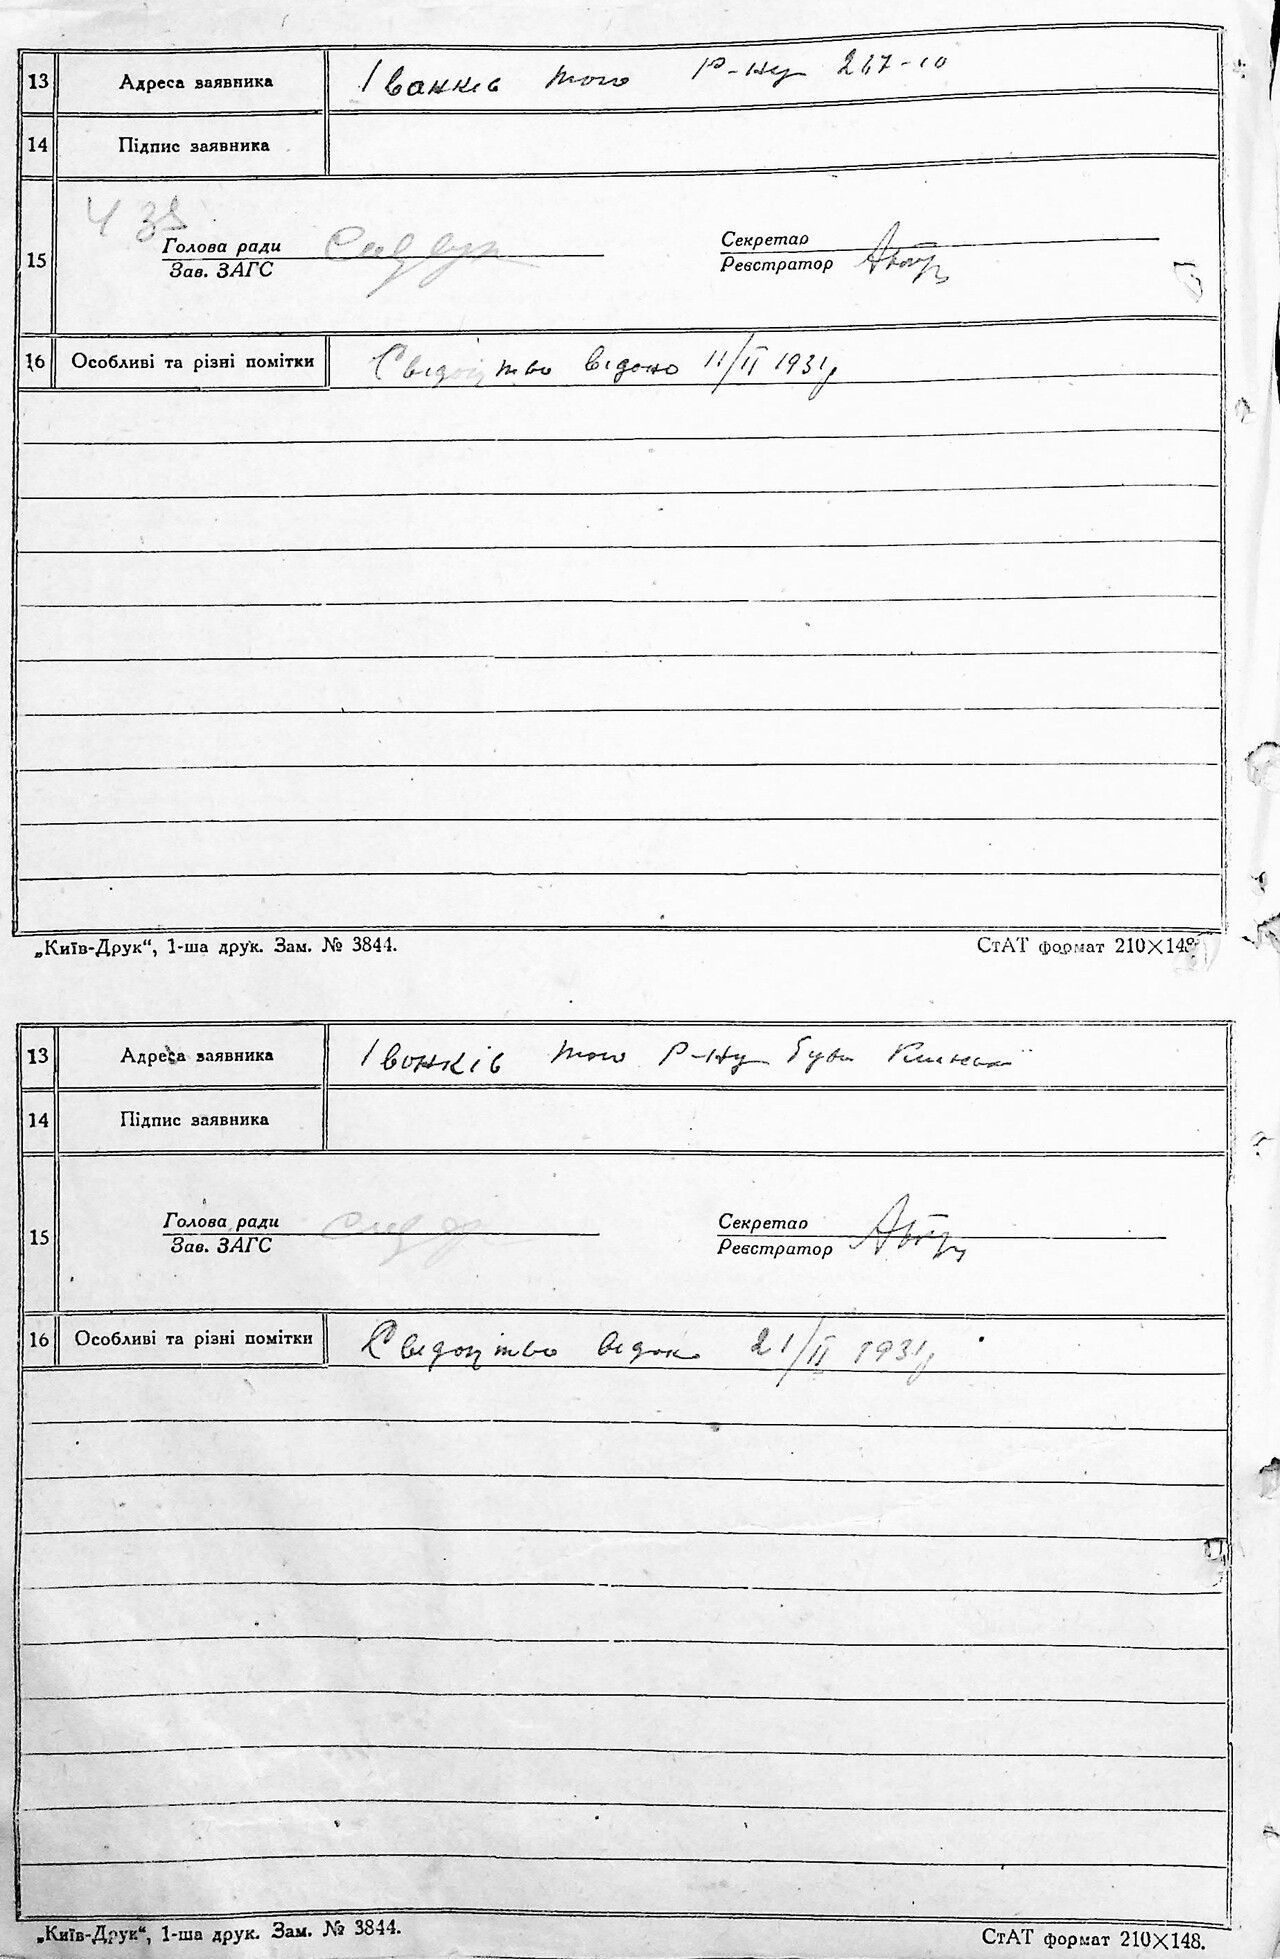 13 Адреса заявника Іванків того р-ну 217-10
14 Підпис заявника
Голова ради Секретар
15 Зав. ЗАГС Реєстратор
16 Особливі та різні помітки Свидоцтво видано 11/II 1931р
„Київ-Друк“, 1-ша друк. Зам. № 3844. СтАТ формат 210×148.
13 Адреса заявника Іванків того р-ну
14 Підпис заявника
Голова ради Секретар
15 Зав. ЗАГС Реєстратор
16 Особливі та різні помітки Свидоцтво видано 21/II 1931р
„Київ-Друк“, 1-ша друк. Зам. № 3844. СтАТ формат 210×148.